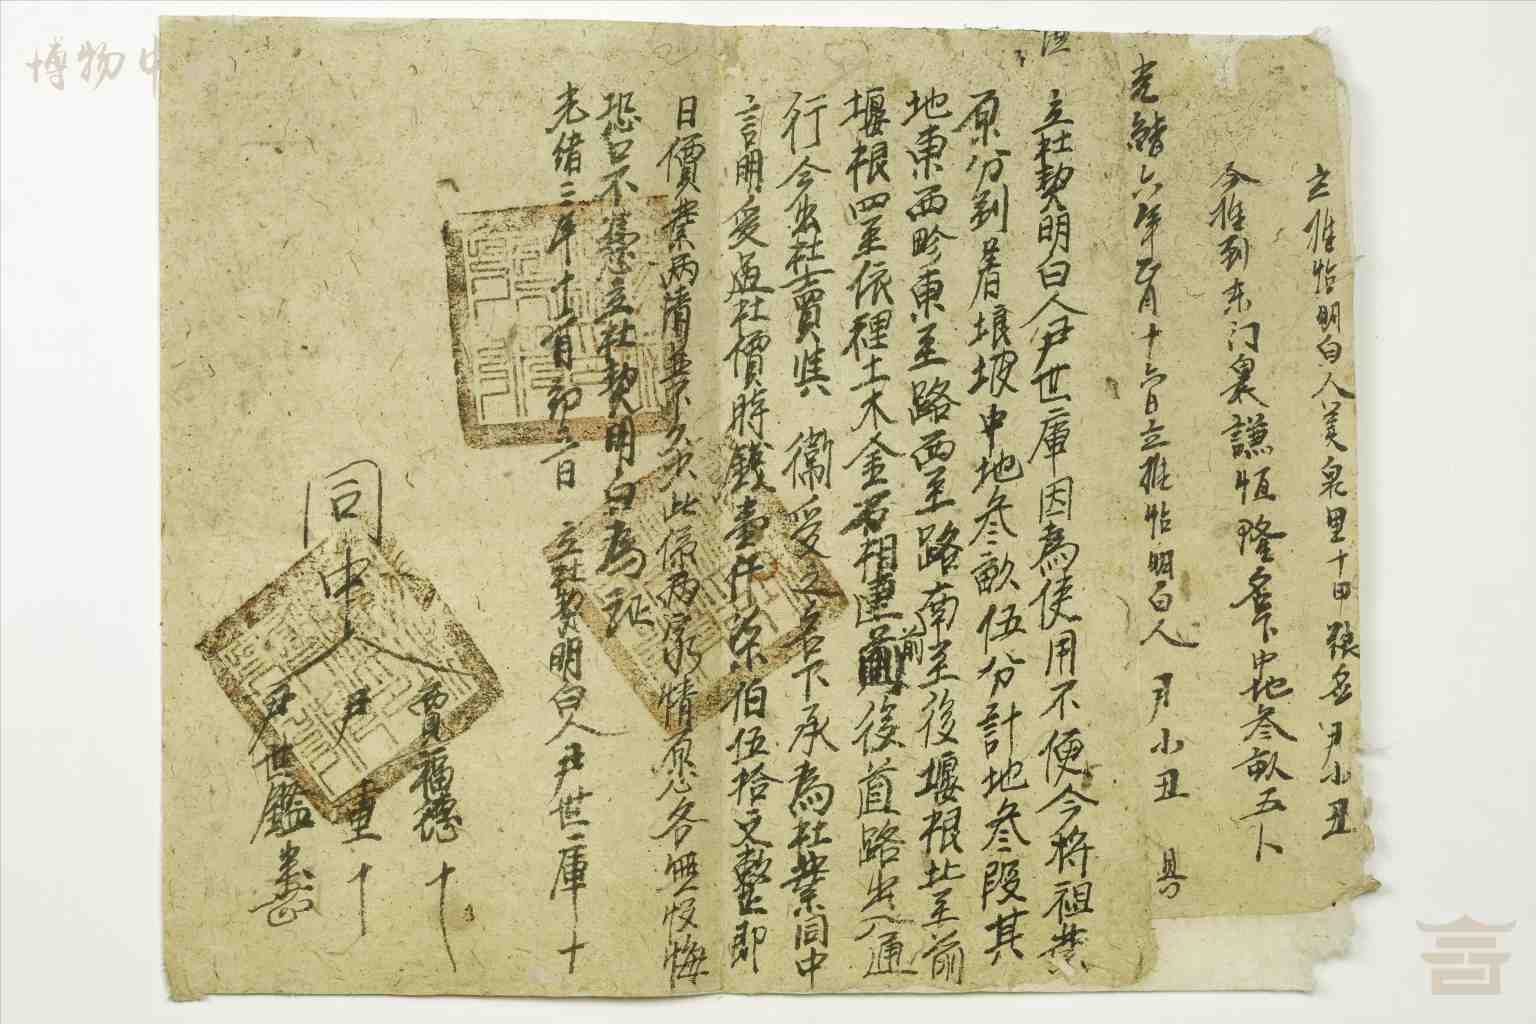 立推帖明白人美泉里十甲張名尹小丑
今推到東门裏謙恒隆名下中地叁畝五卜
光緒六年正月十六日立推帖明白人 尹小丑 具
立杜契明白人尹世庫因為使用不便今将祖業
原分到着埌坡中地叁畝伍分計地叁段其
地東西畛東至路西至路南至後堰根北至前
堰根四至依裡土木金石相連前後道路出入通
行今出杜賣與 衞受之名下承為杜業同中
言明受過杜價時錢壹仟柒伯伍拾文整即
日價業两清並不欠此係两家情愿各無恨悔
恐口不憑立杜契明白為証
光緒三年十二月初六日 立杜契明白人尹世庫十
同中人
賈福德 十
尹重 十
尹世鑑 書
博物中